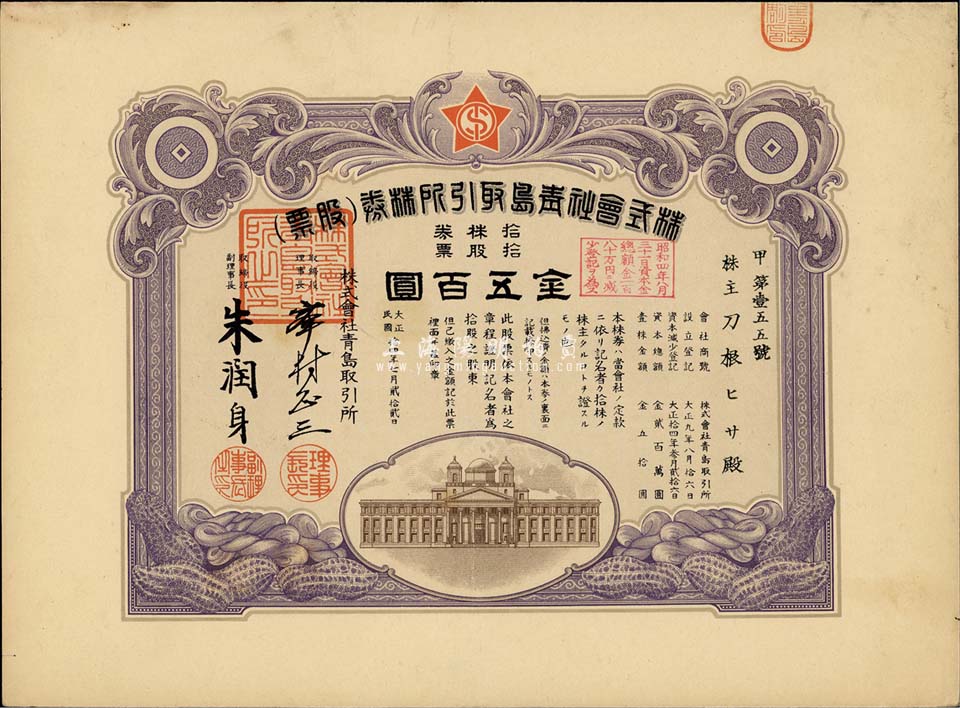 株式會社青島取引所株券(股票)
拾株券
拾股票
金五百圓
甲第壹五五號
株主 刀根ヒサ殿
會社商號 株式會社青島取引所
設立登記 大正九年八月十六日
資本減少登記 大正拾四年叁月貳拾六日
資本總額 金貳百萬圓
壹株金額 金五拾圓
昭和四年八月
三十一日資本金
總額金二百
八十万円ニ減
少登記ヲ為ス
本株券ハ當會社ノ定款
ニ依リ記名者ヲ拾株ノ
株主タルコトヲ證スル
モノ也
但拂込濟金額ハ本券ノ裏面ニ
記載捺印スルモノトス
此股票依本會社之
章程證明記名者為
拾股之股東
但已繳入之金額記於此票
裡面並捺印章
大正
民國
月貳拾貳日
株式會社青島取引所
取締役
理事長
取締役
副理事長
朱潤身
理事長印
副理事長印